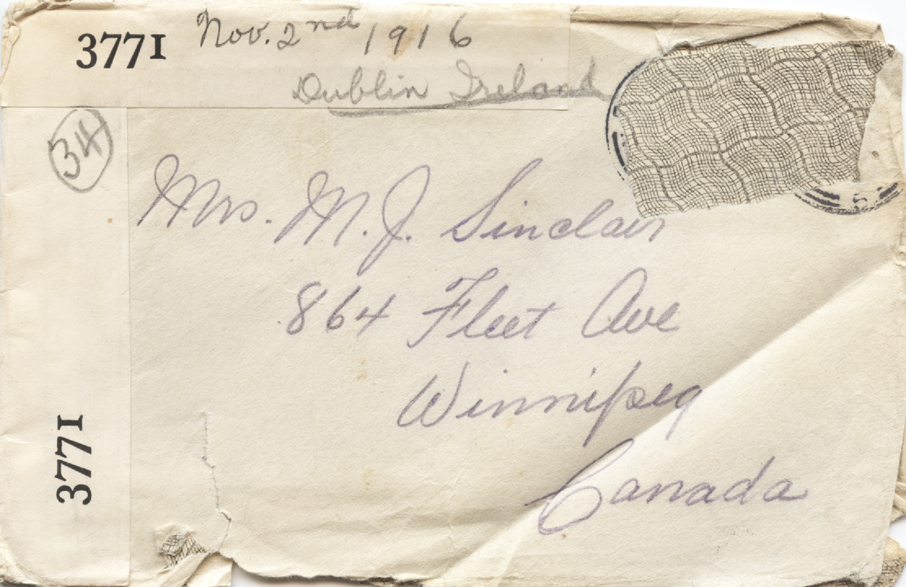 3771 Nov. 2nd 1916
Dublin Ireland
34
Mrs. M. J. Sinclair
864 Fleet Ave
Winnipeg
Canada
3771